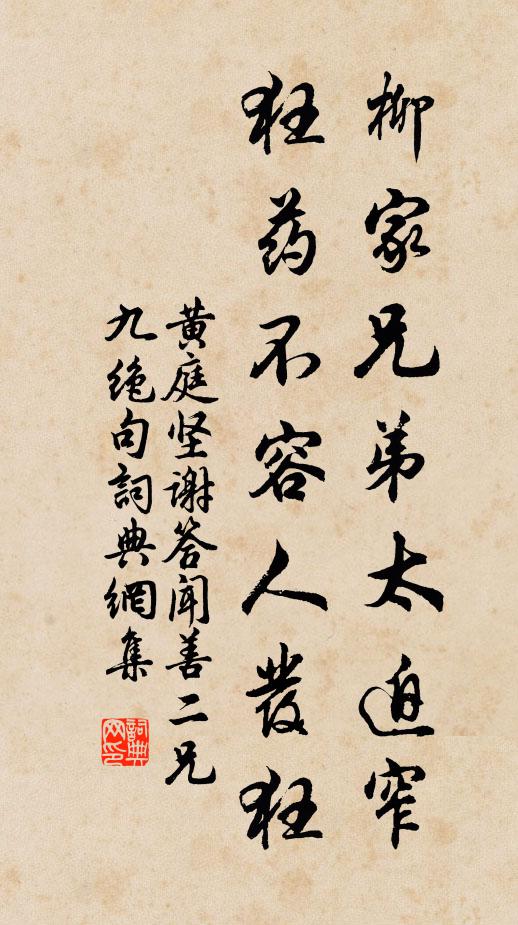 柳家兄弟太迫窄
狂药不容人發狂
黄庭坚谢答闻善二兄
九绝句詞典網集
詞典
网印